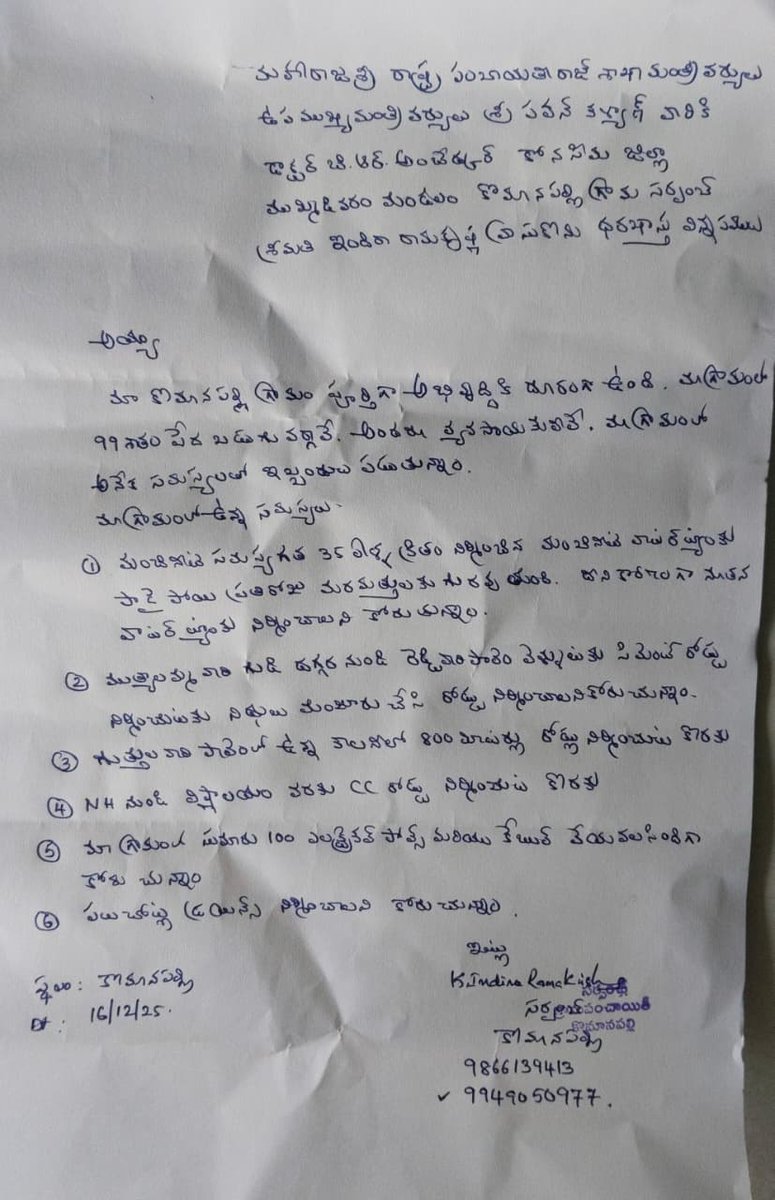 మహారాజశ్రీ రాష్ట్ర పంచాయతీరాజ్ శాఖామంత్రి వర్యులు
ఉపముఖ్యమంత్రి వర్యులు శ్రీ పవన్ కళ్యాణ్ వారికి
డాక్టర్ బి.ఆర్. అంబేద్కర్ కోనసీమ జిల్లా
ముమ్మిడివరం మండలం కొమానపల్లి గ్రామ సర్పంచ్
శ్రీమతి ఇందిరా రామకృష్ణ వ్రాసుకొను ధరఖాస్తు విన్నపములు
అయ్యా
మా కొమానపల్లి గ్రామం పూర్తిగా అభివృద్ధికి దూరంగా ఉంది. మాగ్రామంలో
99 శాతం పేద బడుగు వర్గాలే. అందరు వ్యవసాయకులే. మా గ్రామంలో
అనేక సమస్యలతో ఇబ్బందులు పడుతున్నాం.
మాగ్రామంలో ఉన్న సమస్యలు-
① మంచినీటి సమస్య గత 35 ఏళ్ళ క్రితం నిర్మించిన మంచినీటి వాటర్ ట్యాంకు
పాడై పోయి ప్రతిరోజు మరమత్తులకు గురవుతుంది. దాని కారణంగా నూతన
వాటర్ ట్యాంకు నిర్మించాలని కోరుచున్నాం.
② ముత్యాలమ్మ వారి గుడి దగ్గర నుండి రెడ్డివారిపాలెం వెళ్ళుటకు సిమెంట్ రోడ్డు
నిర్మించుటకు నిధులు మంజూరు చేసి రోడ్డు నిర్మించాలని కోరుచున్నాం.
③ గుత్తుల వారి పాలెంలో ఉన్న కాలనీలో 800 మీటర్లు రోడ్లు నిర్మించుట కొరకు
④ NH నుండి విద్యాలయం వరకు CC రోడ్డు నిర్మించుట కొరకు
⑤ మా గ్రామంలో సుమారు 100 ఎలక్ట్రికల్ పోల్స్ మరియు కేబుల్ వేయవలసిందిగా
కోరుచున్నాం
⑥ పలుచోట్ల డ్రెయిన్స్ నిర్మించాలని కోరుచున్నాం.
ఇట్లు
స్థలం: కొమానపల్లి
K. Indira RamaKrish
సర్పంచ్
పంచాయితీ
Dt: 16/12/25.
కొమానపల్లి
కొమానపల్లి
9866139413
✓ 9949050977.